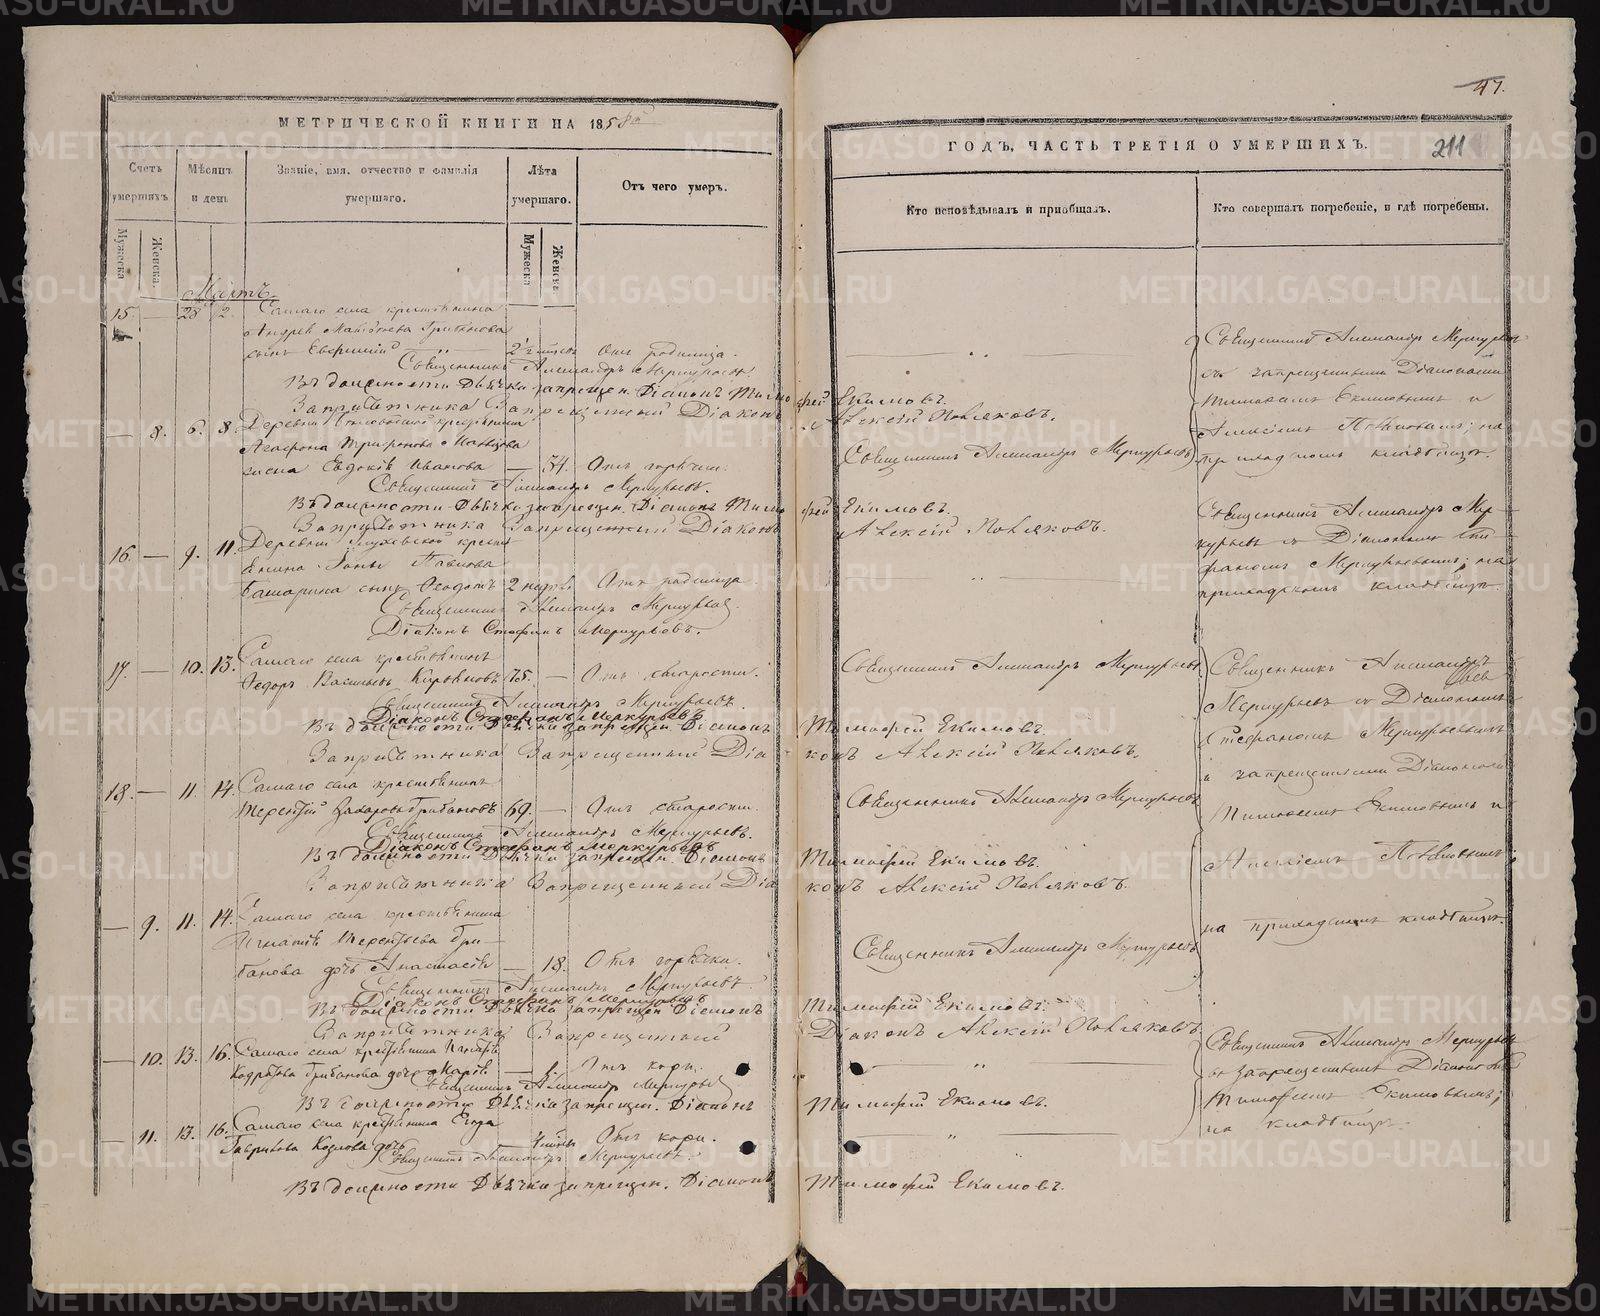 METRIKI.GASO-URAL.RU
47.
МЕТРИЧЕСКОЙ КНИГИ НА 1858й
Счетъ умершихъ
Мѣсяцъ и день
Званіе, имя, отчество и фамилія умершаго.
Лѣта умершаго.
Отъ чего умеръ.
Мужеска
Женска.
Мужеска
Женска
Мартъ.
15. — 28 2. Самаго села крестьянина
Андрея Грибанова
сынъ Евфимій Отъ родимца.
Священникъ Александръ Меркурьевъ
Въ должности Дьячка запрещен. Діаконъ Тимо
Запричетника Запрещенный Діаконъ
— 8. 6. 8. Деревни крестьянина
Агафона Трифонова
жена Евдокія Иванова — 34. Отъ горячки.
Священникъ Александръ Меркурьевъ.
Въ должности Дьячка запрещен. Діаконъ Тимо
Запричетника Запрещенный Діаконъ
16. — 9. 11. Деревни крестья
янина Павлова
сынъ Ѳеодотъ 2 недѣли Отъ родимца.
Священникъ Александръ Меркурьевъ.
Діаконъ Стефанъ Меркурьевъ.
17. — 10. 13. Самаго села крестьянинъ
Ѳедоръ Васильевъ 75. — Отъ старости.
Священникъ Александръ Меркурьевъ.
Діаконъ Стефанъ Меркурьевъ
Въ должности Дьячка запрещен. Діаконъ
Запричетника Запрещенный Діа
18. — 11. 14. Самаго села крестьянинъ
Терентій Захаровъ Грибановъ 69. — Отъ старости.
Священникъ Александръ Меркурьевъ.
Діаконъ Стефанъ Меркурьевъ
Въ должности Дьячка запрещен. Діаконъ
Запричетника Запрещенный Діа
— 9. 11. 14. Самаго села крестьянина
Игнатія Терентьева Гри-
банова дочь Анастасія — 18. Отъ горячки.
Священникъ Александръ Меркурьевъ.
Діаконъ Стефанъ Меркурьевъ
Въ должности Дьячка запрещен. Діаконъ
Запричетника Запрещенный
— 10. 13. 16. Самаго села крестьянина
Грибанова дочь Марія — Отъ кори.
Священникъ Александръ Меркурьевъ
Въ должности Дьячка запрещен. Діаконъ
— 11. 13. 16. Самаго села крестьянина Егора
Гаврилова Козлова дочь Отъ кори.
Священникъ Александръ Меркурьевъ.
Въ должности Дьячка запрещен. Діаконъ
ГОДЪ, ЧАСТЬ ТРЕТІЯ О УМЕРШИХЪ.
211
Кто исповѣдывалъ и пріобщалъ.
Кто совершалъ погребеніе, и гдѣ погребены.
фей Екимовъ.
Алексій Поляковъ.
Священникъ Александръ Меркурьевъ
фей Екимовъ.
Алексій Поляковъ.
Священникъ Александръ Меркурьевъ
Тимофей Екимовъ.
конъ Алексій Поляковъ.
Священникъ Александръ Меркурьевъ
Тимофей Екимовъ.
конъ Алексій Поляковъ.
Священникъ Александръ Меркурьевъ
Тимофей Екимовъ.
Діаконъ Алексій Поляковъ
Тимофей Екимовъ.
Тимофей Екимовъ.
Священникъ Александръ Меркурьевъ
съ запрещенными Діаконами
Тимофеемъ Екимовымъ и
Алексіемъ Поляковымъ; на
приходскомъ кладбищѣ.
Священникъ Александръ Мер-
курьевъ съ Діакономъ Сте-
фаномъ Меркурьевымъ; на
приходскомъ кладбищѣ.
Священникъ Александръ
Меркурьевъ съ Діакономъ
Стефаномъ Меркурьевымъ
и запрещенными Діаконами
Тимофеемъ Екимовымъ и
Алексіемъ Поляковымъ;
на приходскомъ кладбищѣ.
Священникъ Александръ Меркурьевъ
съ запрещеннымъ Діакономъ
Тимофеемъ Екимовымъ;
на кладбищѣ.